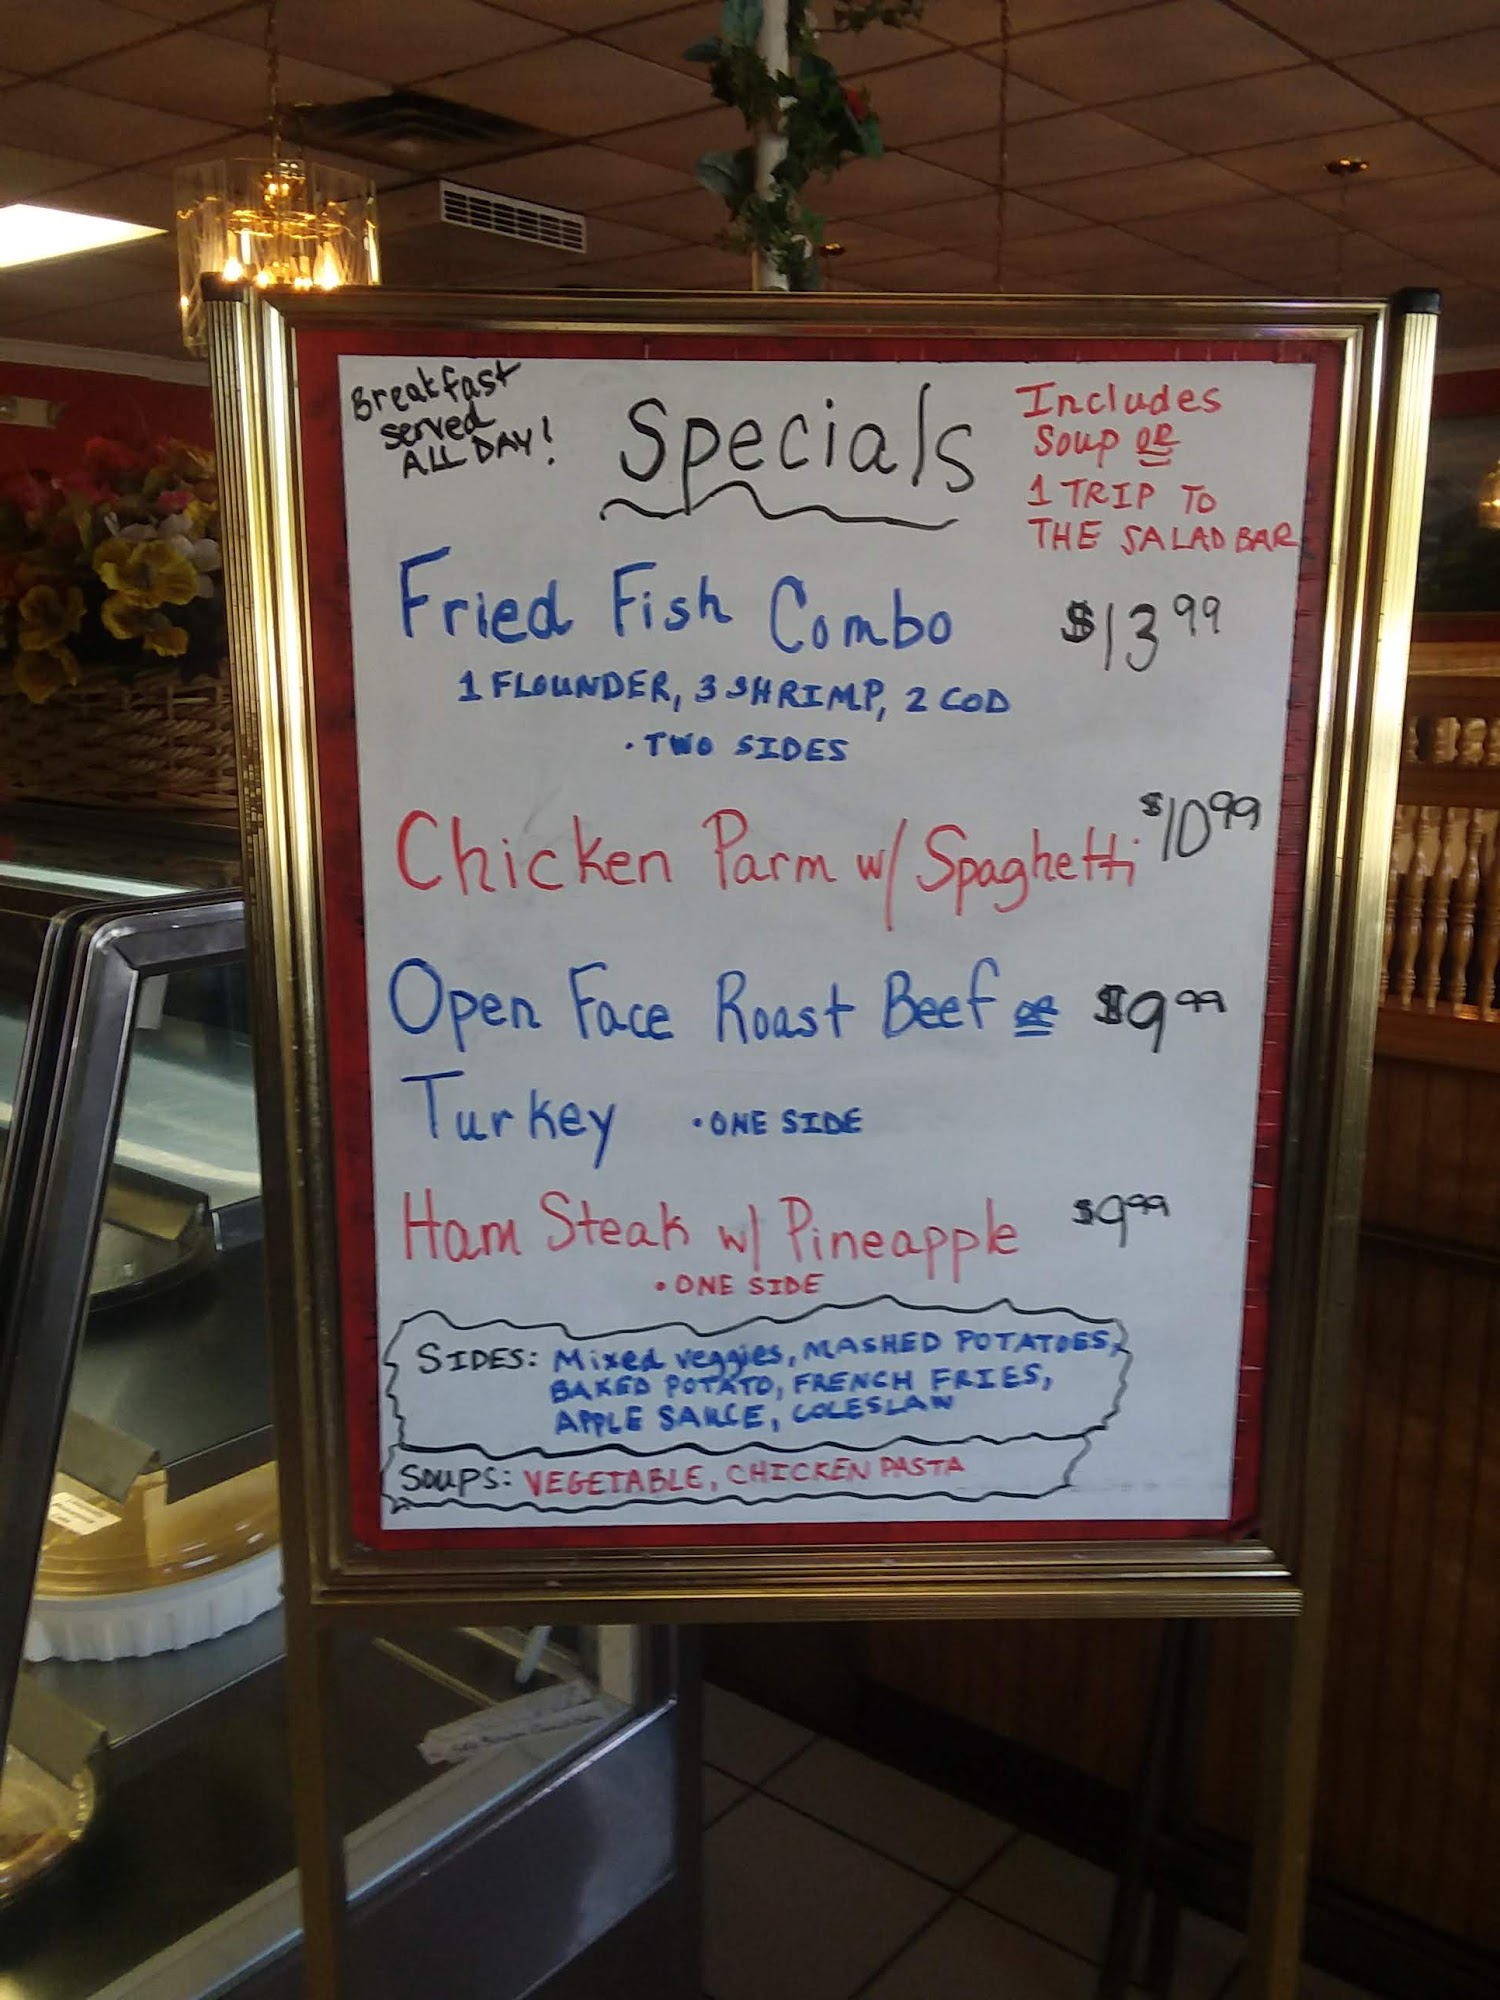 Breakfast
served
ALL DAY!
Specials
Includes
Soup OR
1 TRIP TO
THE SALAD BAR
Fried Fish Combo $13.99
1 FLOUNDER, 3 SHRIMP, 2 COD
• TWO SIDES
Chicken Parm w/ Spaghetti $10.99
Open Face Roast Beef OR $9.99
Turkey • ONE SIDE
Ham Steak w/ Pineapple $9.99
• ONE SIDE
SIDES: Mixed veggies, MASHED POTATOES,
BAKED POTATO, FRENCH FRIES,
APPLE SAUCE, COLESLAW
SOUPS: VEGETABLE, CHICKEN PASTA